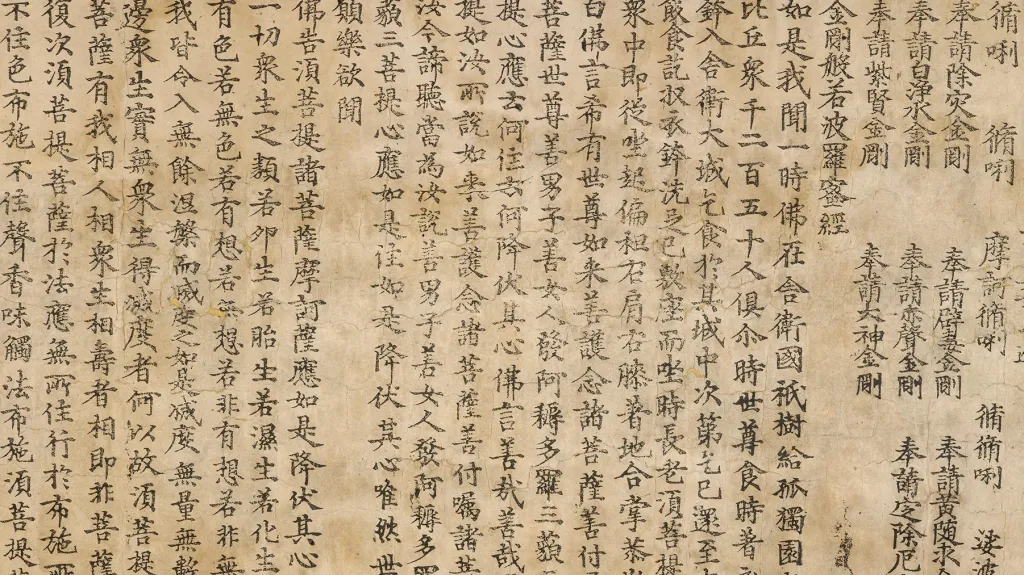 脩唎 脩唎 摩訶脩唎 脩脩唎 娑婆
奉請除灾金剛 奉請辟毒金剛 奉請黃随求金
奉請白淨水金剛 奉請赤聲金剛 奉請定除厄
奉請紫賢金剛 奉請大神金剛
金剛般若波羅蜜經
如是我聞一時佛在舍衛國祇樹給孤獨園
比丘衆千二百五十人俱尒時世尊食時著
鉢入舍衛大城乞食於其城中次第乞已還至
飯食訖收衣鉢洗足已敷座而坐時長老須菩提
衆中即從坐起偏袒右肩右膝著地合掌恭
白佛言希有世尊如來善護念諸菩薩善付
菩薩世尊善男子善女人發阿耨多羅三藐
提心應云何住云何降伏其心佛言善哉善哉
提如汝所說如來善護念諸菩薩善付囑諸菩
汝今諦聽當為汝說善男子善女人發阿耨多羅
藐三菩提心應如是住如是降伏其心唯然世
願樂欲聞
佛告須菩提諸菩薩摩訶薩應如是降伏其心
一切衆生之類若卵生若胎生若濕生若化生
有色若無色若有想若無想若非有想若非無
我皆令入無餘涅槃而滅度之如是滅度無量無數
邊衆生實無衆生得滅度者何以故須菩提
菩薩有我相人相衆生相壽者相即非菩薩
復次須菩提菩薩於法應無所住行於布施所
不住色布施不住聲香味觸法布施須菩提